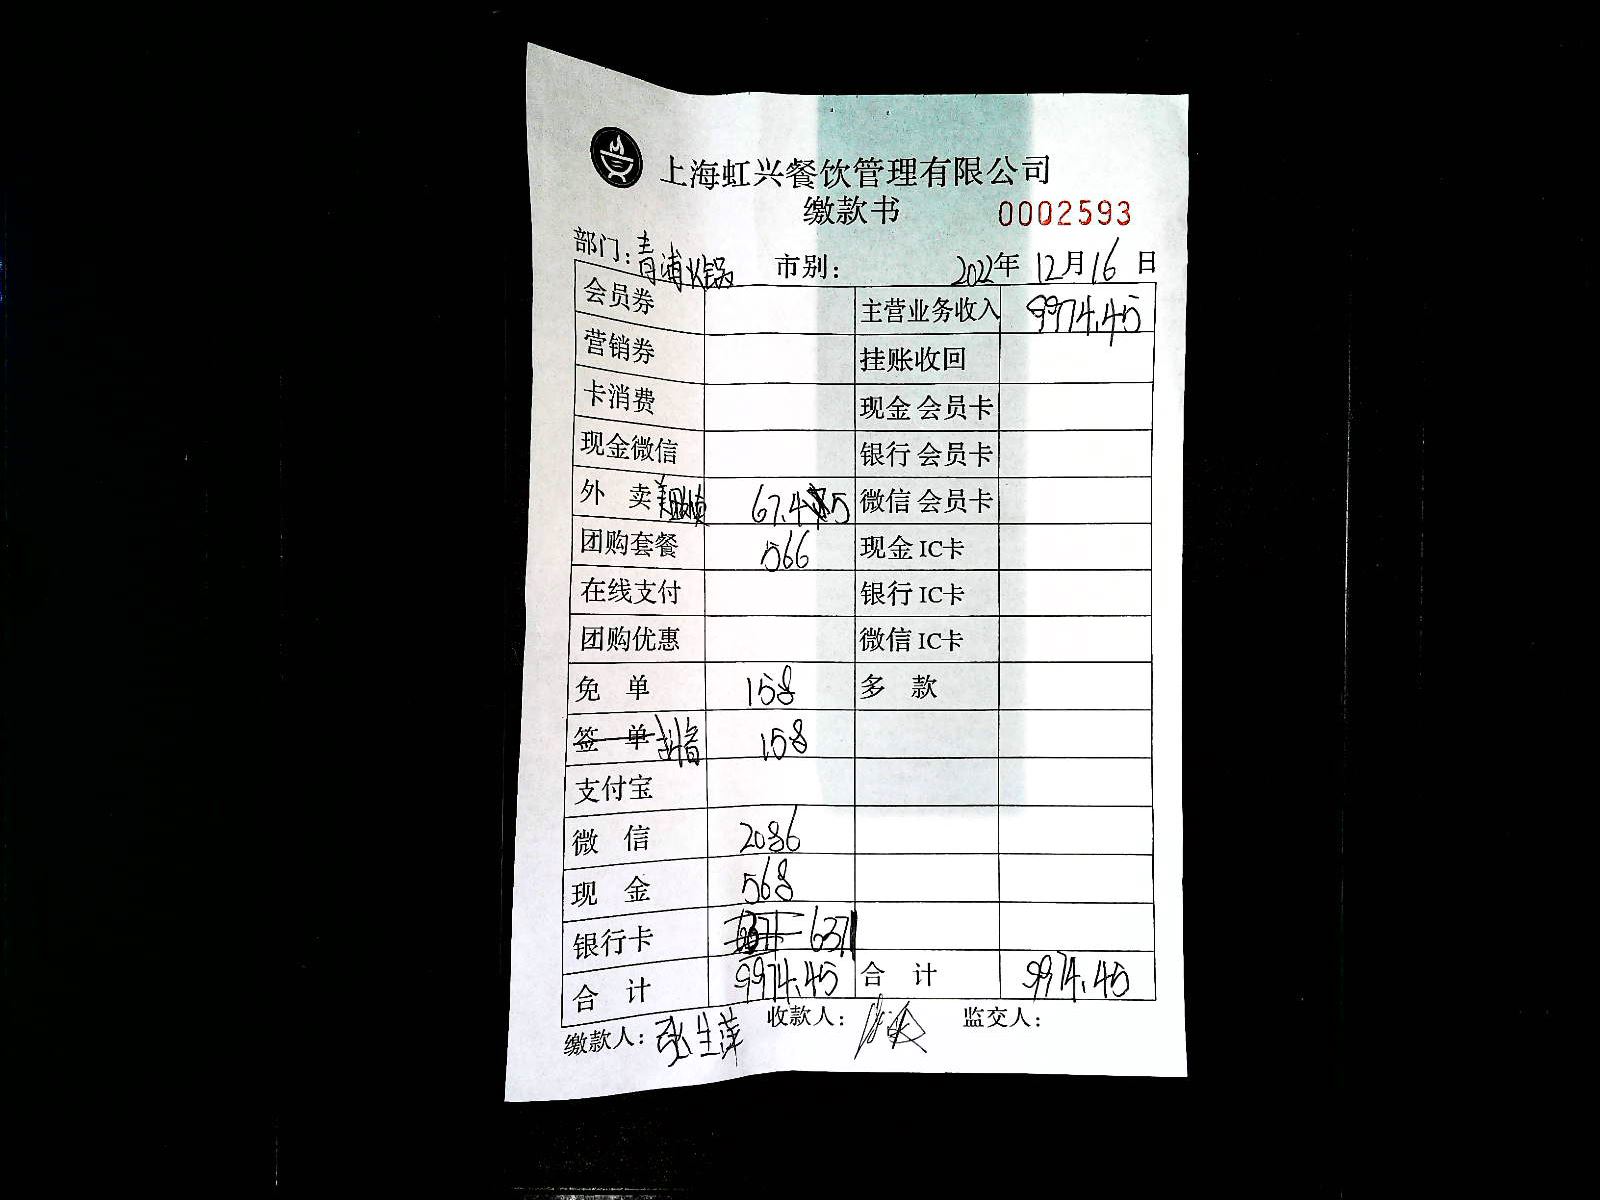 上海虹兴餐饮管理有限公司
缴款书 0002593
部门：青浦火锅 市别： 2022年 12月16日
会员券 主营业务收入 9974.45
营销券 挂账收回
卡消费 现金 会员卡
现金微信 银行 会员卡
外 卖 67.45 微信 会员卡
团购套餐 566 现金 IC卡
在线支付 银行 IC卡
团购优惠 微信 IC卡
免 单 158 多 款
签 单 抖音 158
支付宝
微 信 2086
现 金 568
银行卡 6371
合 计 9974.45 合 计 9974.45
缴款人：张生萍 收款人： 监交人：